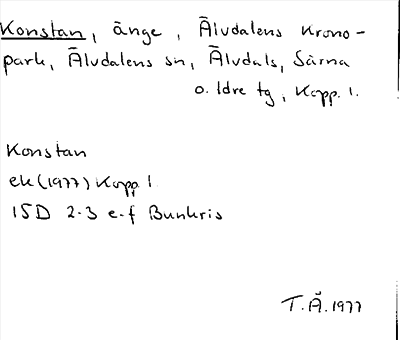 Konstan, änge, Älvdalens Krono-
park, Älvdalens sn, Älvdals, Särna
o. Idre tg, Kopp. l.
Konstan
ek (1977) Kopp. l
15D 2-3 e-f Bunkris
T. Å. 1977